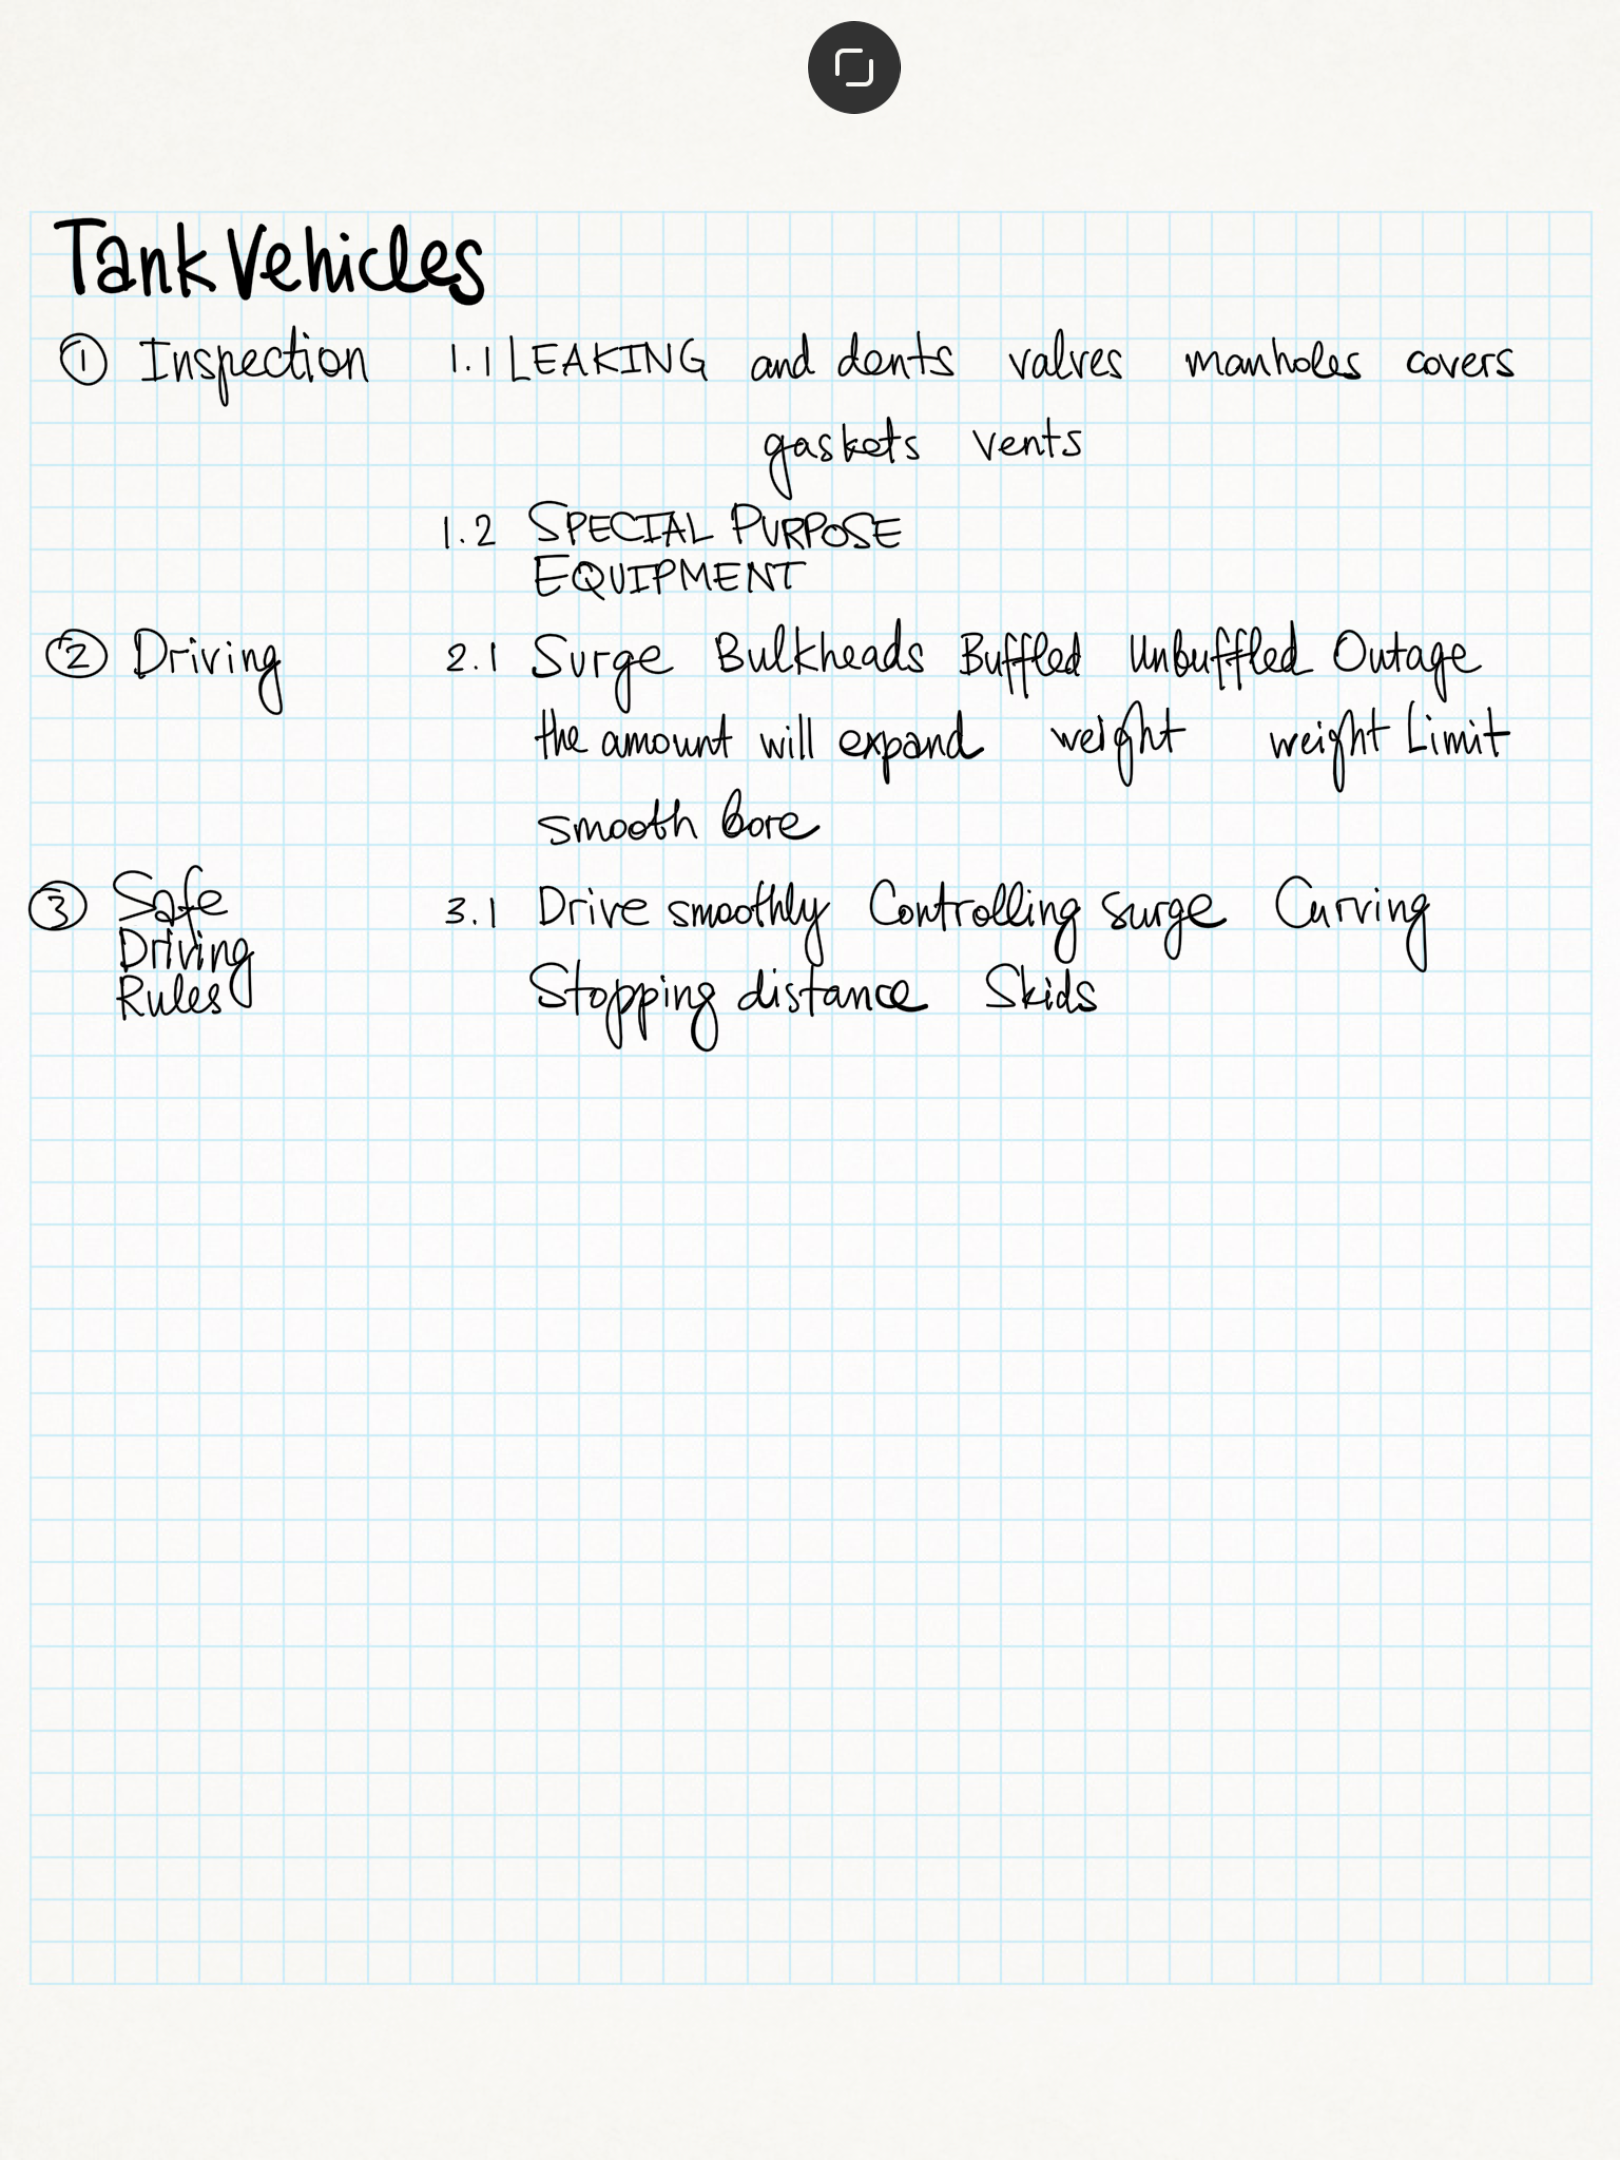 Tank Vehicles
① Inspection 1.1 LEAKING and dents valves manholes covers
gaskets vents
1.2 SPECIAL PURPOSE
EQUIPMENT
② Driving 2.1 Surge Bulkheads Buffled Unbuffled Outage
the amount will expand weight weight Limit
smooth bore
③ Safe
Driving
Rules
3.1 Drive smoothly Controlling surge Curving
Stopping distance Skids